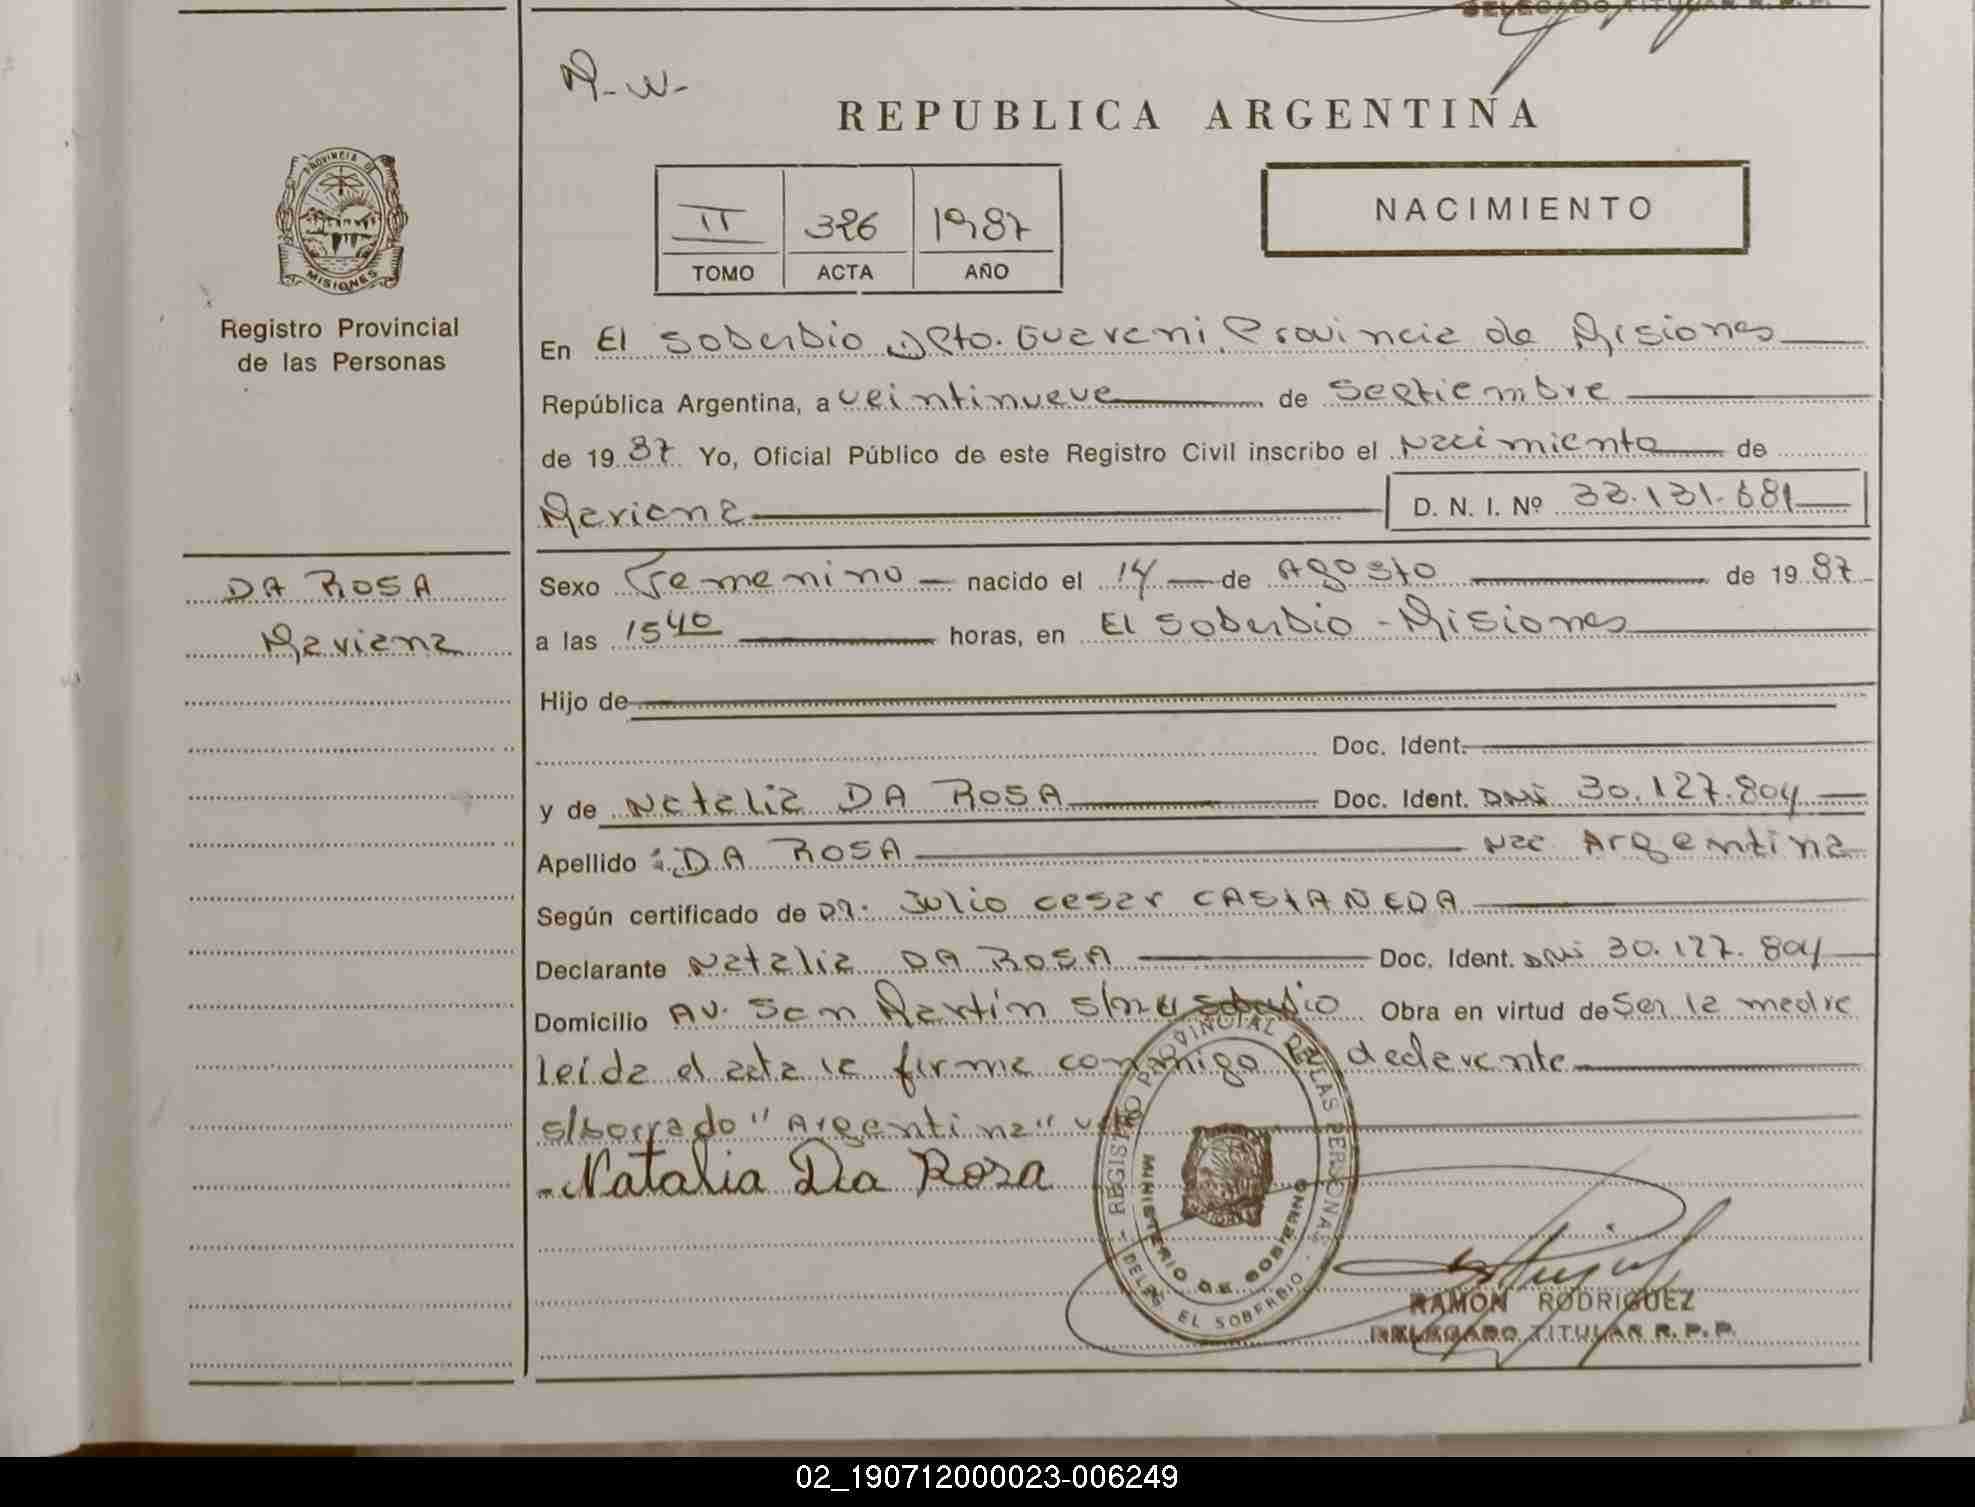 DELEGADO TITULAR R. P. P.
M-W-
REPUBLICA ARGENTINA
PROVINCIA DE
MISIONES
II 326 1987
TOMO ACTA AÑO
NACIMIENTO
Registro Provincial
de las Personas
En El Soberbio Dpto. Guarani Provincia de Misiones
República Argentina, a veintinueve de Septiembre
de 1987 Yo, Oficial Público de este Registro Civil inscribo el Nacimiento de
Mariana D. N. I. Nº 33.131.681
DA ROSA
Mariana
Sexo Femenino nacido el 14 de Agosto de 1987
a las 15 40 horas, en El Soberbio - Misiones
Hijo de
Doc. Ident.
y de Natalia DA ROSA Doc. Ident. DNI 30.127.804
Apellido : DA ROSA Nac Argentina
Según certificado de Dr. Julio Cesar CASTANEDA
Declarante Natalia DA ROSA Doc. Ident. DNI 30.127.804
Domicilio AV. San Martín s/n El Soberbio Obra en virtud de Ser la madre
leida el acta la firma conmigo la declarante
s/borrado "Argentina" vale
- Natalia Da Rosa
REGISTRO PROVINCIAL DE LAS PERSONAS
MINISTERIO DE GOBIERNO
DELEG. EL SOBERBIO
MISIONES
RAMÓN RODRIGUEZ
DELEGADO TITULAR R. P. P.
02_190712000023-006249